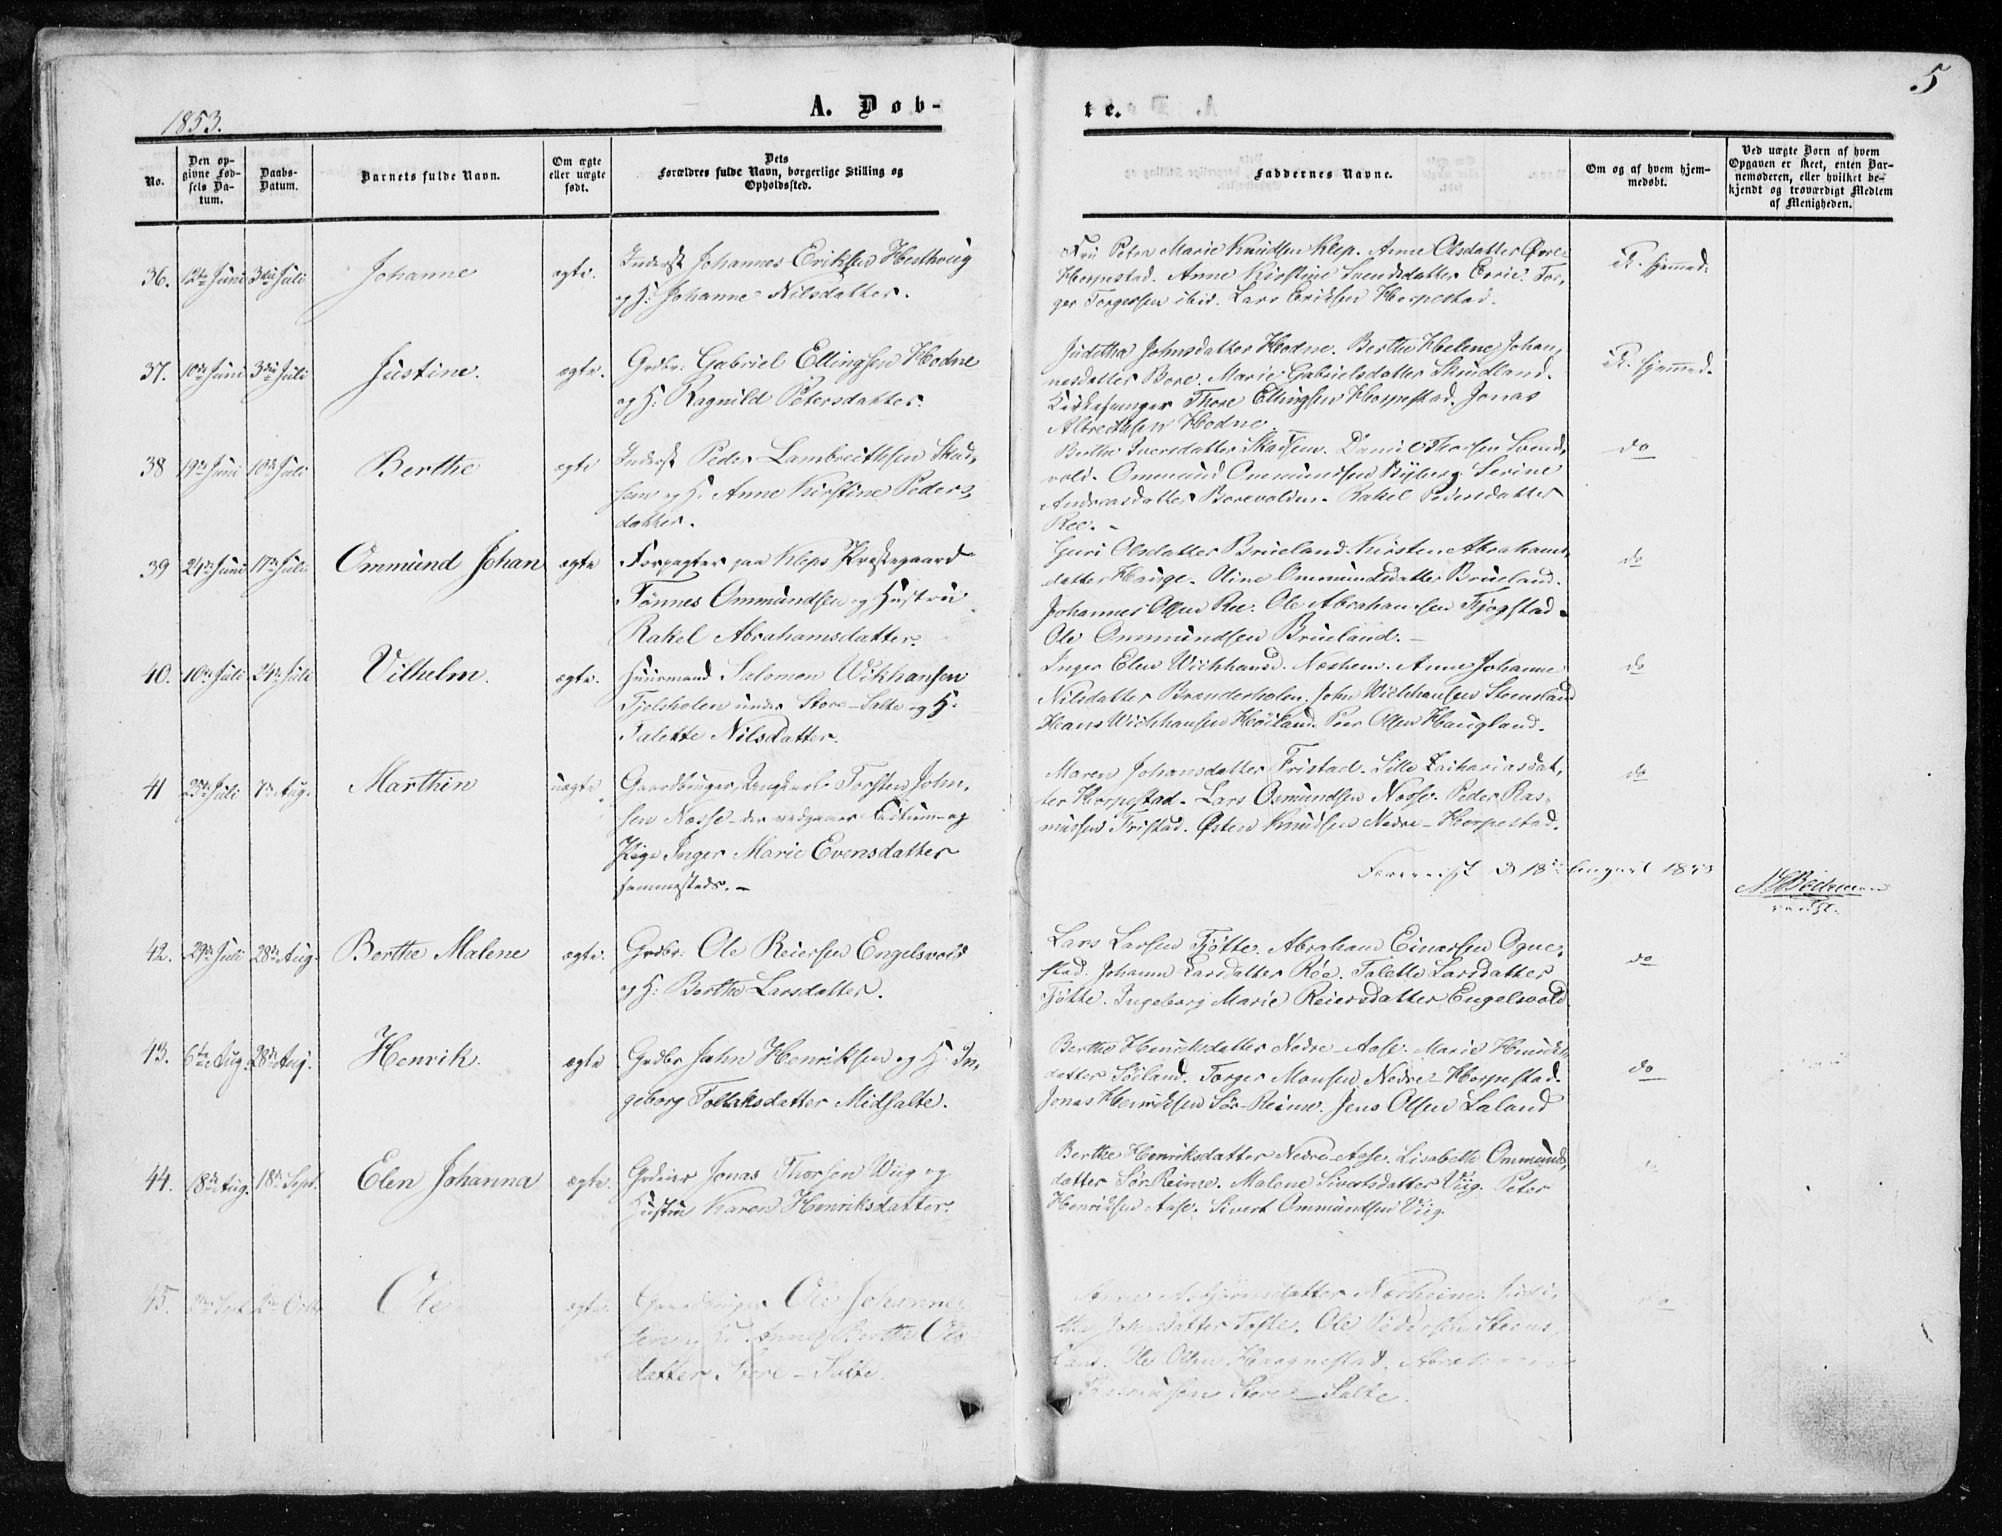 5
1853.
A. Døb-
te.
No.
Den op-
givne Fød-
sels Da-
tum.
Daabs-
Datum.
Barnets fulde Navn.
Om ægte
eller uægte
født.
Dets
Forældres fulde Navn, borgerlige Stilling og
Opholdssted.
Faddernes Navne.
Om og af hvem hjem-
medøbt.
Ved uægte Børn af hvem
Opgaven er skeet, enten Bar-
nemoderen, eller hvilket be-
kjendt og troværdigt Medlem
af Menigheden.
36. 12te Juni 3die Juli Johanne ægte. Inderst Johannes Eriksen
og H: Johanne Nilsdatter.
Fru Petra Marie Knudsen Klep. Anne Olsdatter Øvre
Horpestad. Anne Kirstine Svendsdatter Tor-
ger Torgersen ibid. Lars Eriksen Horpestad.
37. 10de Juni 3die Juli Justine. ægte. Grdbr: Gabriel Ellingsen Hodne
og H: Ragnild Petersdatter.
Juditha Johnsdatter Hodne. Berthe Helene Johan-
nesdatter Bore. Marie Gabrielsdatter Skudland.
Kirkesanger Thore Ellingsen Horpestad. Jonas
Albrectsen Hodne.
38 19de Juni 10de Juli Berthe ægte Inderst Peder Lambrecthsen Skad-
sem og H. Anne Kirstine Peders-
datter.
Berthe Iversdatter Skadsem. Daniel Thorsen Svend-
vold. Ommund Ommundsen Byberg. Serine
Andreasdatter Borevolden. Rakel Pedersdatter
Ree. -
do
39 24de Juni 17de Juli Ommund Johan ægte Forpagter paa Kleps Præstegaard
Tønnes Ommundsen og Hustru
Rakel Abrahamsdatter.
Guri Olsdatter Brueland. Kirsten Abrahams-
datter Hauge. Oline Ommundsdatter Brueland.
Johannes Olsen Ree. Ole Abrahamsen Tjøgstad.
Ole Ommundsen Brueland. -
do
40. 10de Juli 24de Juli Vilhelm. ægte. Huusmand Salomon Wikhansen
Tjelsholen under Store-Salte og H.
Talette Nilsdatter.
Inger Elen Næshem. Anne Johanne
Nilsdatter Branderholen. John Wichhansen Steensland
Hans Wichhansen Høiland. Peer Olsen Haugland.
do
41 25de Juli 7de Aug. Marthin uægte Gaardbruger, Ungkarl Torsten John-
sen Nosse - der vedgaaer og
Pige Inger Marie Evensdatter
sammesteds. -
Maren Johansdatter Fristad. Sille Zachariasdat-
ter Horpestad. Lars Osmundsen Nosse. Peder Ras-
mussen Fristad. Østen Knudsen Nedre-Horpestad.
do
d. 18de August 1853
42. 29de Juli 28de Aug. Berthe Malene ægte. Grdbr: Ole Reiersen Engelsvold
og H: Berthe Larsdatter.
Lars Larsen Tjøtte. Abraham Einarsen Ogne-
stad. Johanne Larsdatter Ree. Talette Larsdatter
Tjøtte. Ingeborg Marie Reiersdatter Engelsvold.
do
43. 6te Aug. 28de Aug. Henrik. ægte Grdbr John Henriksen og H: In-
geborg Tollaksdatter Midsalte.
Berthe Henriksdatter Nedre-Aase. Marie Henriks-
datter Søeland. Torger Monsen Nedre-Horpestad.
Jonas Henriksen Sør-Reime. Jens Olsen Laland
do
44. 18de Aug. 18de Sept. Elen Johanna ægte. Grdeier Jonas Thorsen Wiig og
Hustru Karen Henriksdatter.
Berthe Henriksdatter Nedre-Aase. Lisabeth Ommunds-
datter Sør-Reime. Malene Sivertsdatter Viig. Peter
Henriksen Aase. Sivert Ommundsen Viig.
45. Ole ægte Gaardbruger Ole Johanne-
sen og H. Anne Berthe Ols-
datter Store-Salte.
Anne Næsheim. Judi-
the Johnsdatter Tofte. Ole Pedersen Steens-
land. Ole Olsen
Store-Salte.